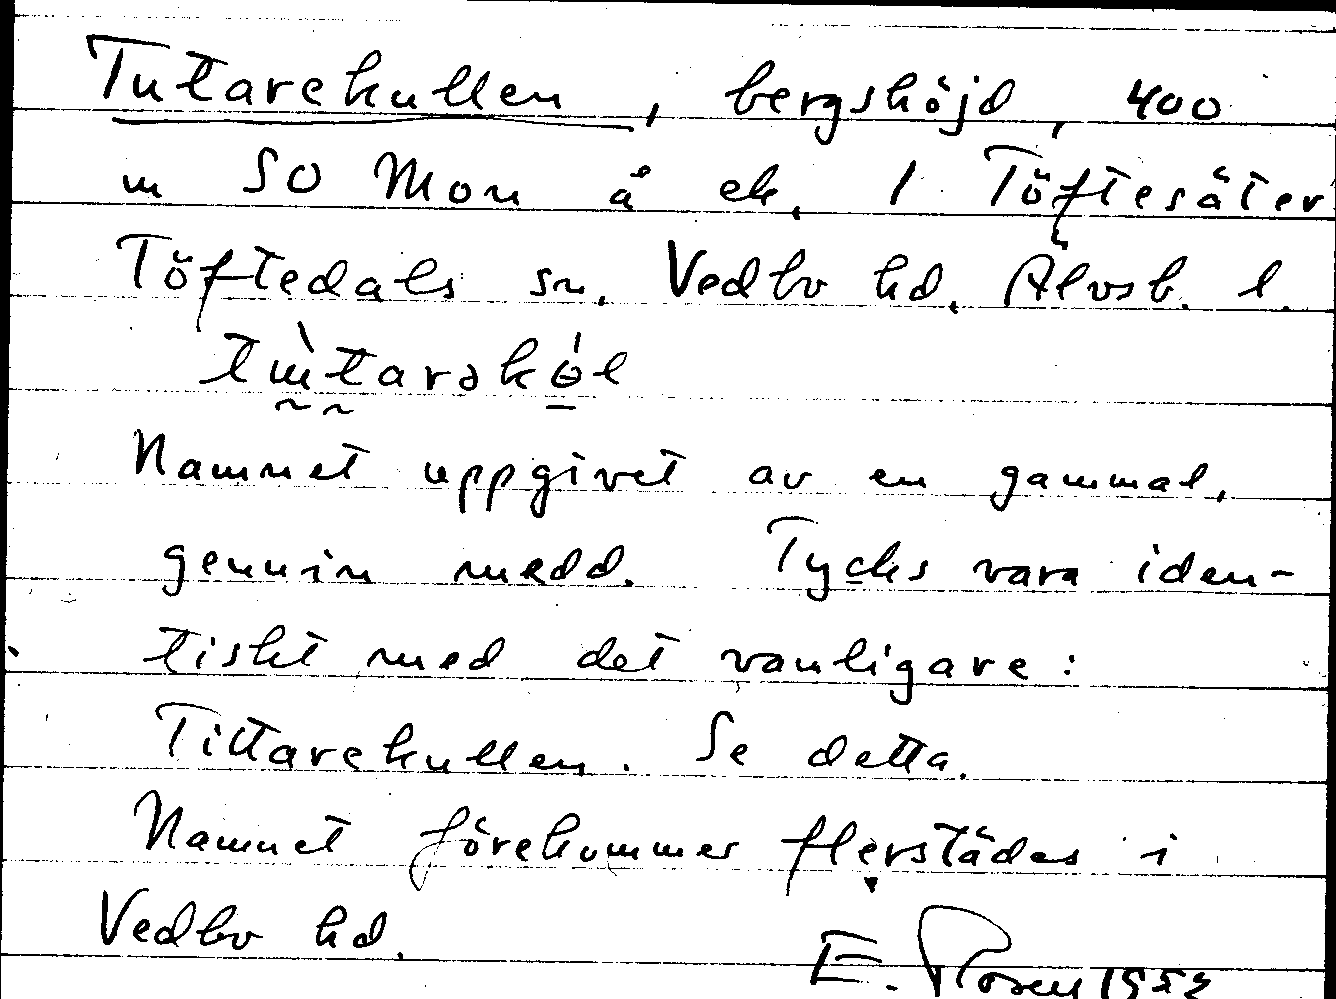 Tutarekullen, bergshöjd, 400
m SO Mon å ek. 1 Töftesäter
Töftedals sn. Vedbo hd. Älvsb. l.
Namnet uppgivet av en gammal,
genuin medd. Tycks vara iden-
tiskt med det vanligare:
Tittarekullen. Se detta.
Namnet förekommer flerstädes i
Vedbo hd.
E. Rosen